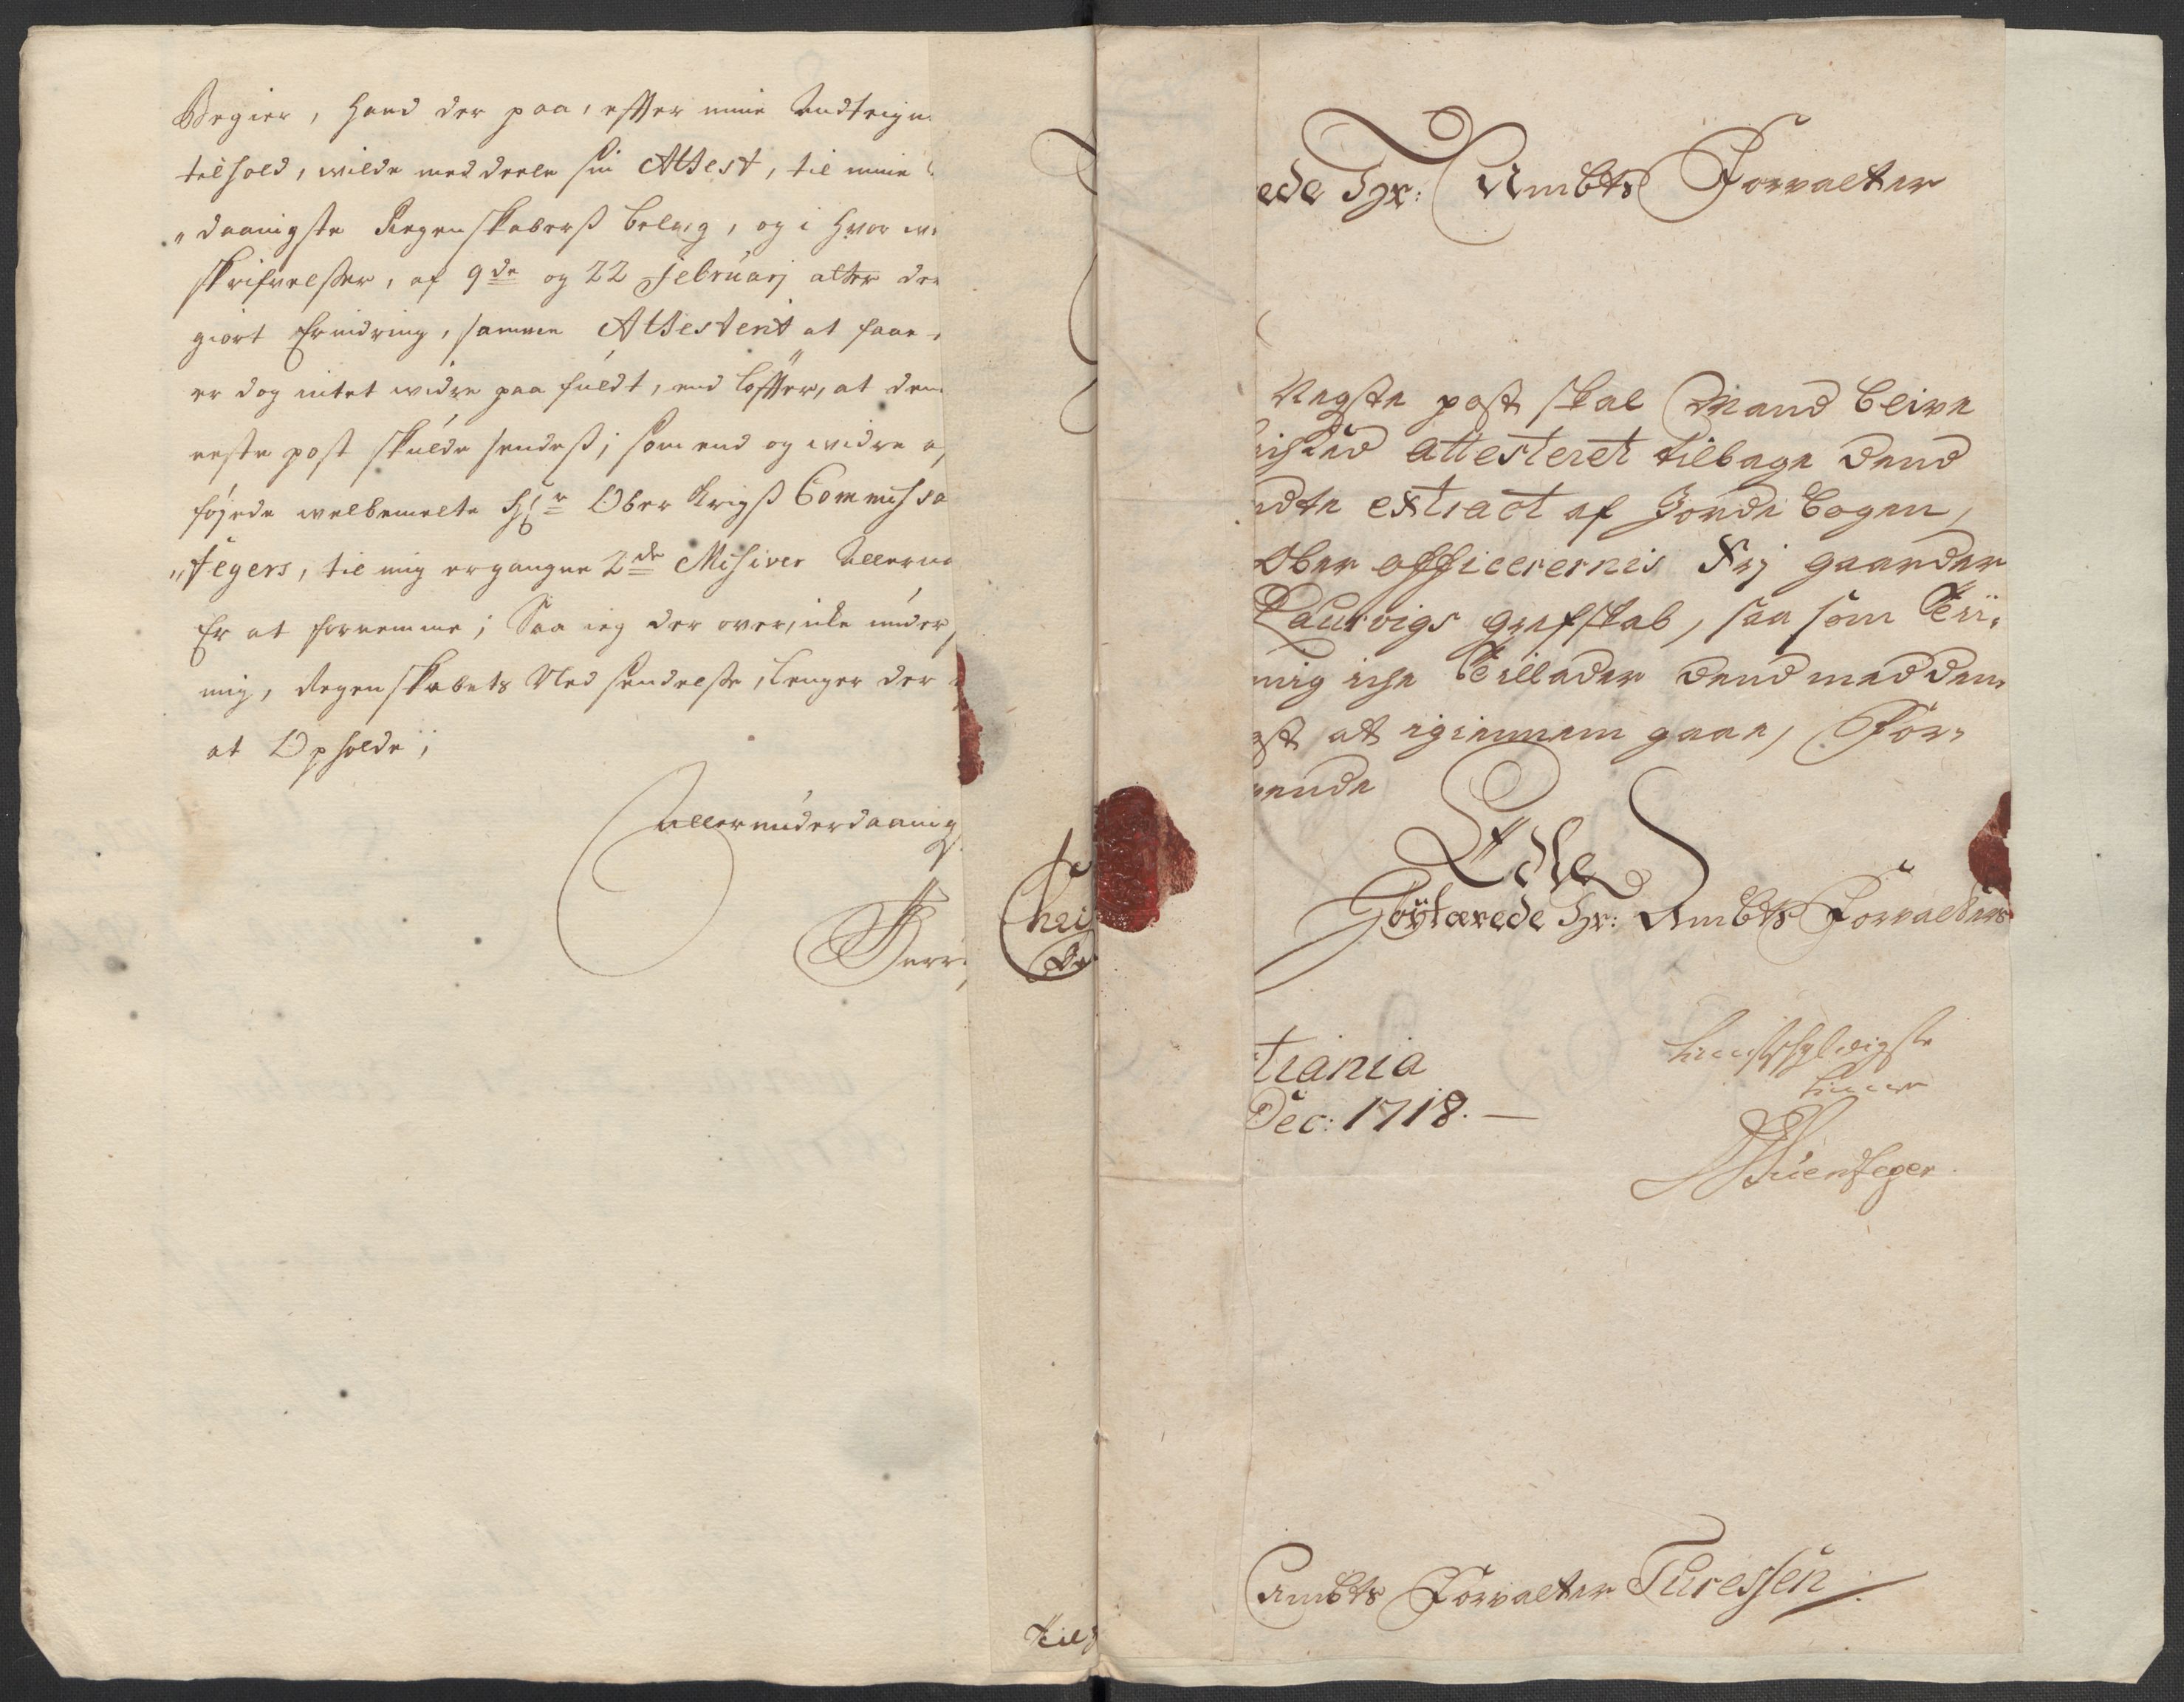 Begier, hand der paa, efter mine Andteign
tilhold, wilde meddeele sin Attest, til mine
"daanigste Regenskabers beleg, og i hvor w
skrifvelsser, af 9de og 22 Februarj atter der
giort Erindring, samme Attestent at faae,
er dog intet widre paa fuldt, end løffter, at den
neste post skulde sendes; som end og widre a
føyede welbemelte Hr Ober Krigs Commissa
"Fegers, til mig ergangne 2de Misiver Allerun
Er at fornemme; Saa ieg der over, icke under
mig, Regenskabets Ned sendelsse, lenger der
at Opholde;
Allerunderdaanig
hei
Til
ede Hr: Ambts Forvalter
Negste post skal Mand blive
attesteret tilbage Dend
ndte extract af Jorde bogen,
Ober officerernis Frj gaarder
Laurvigs grefskab, saa som Tii,
mig iche Tillader Dend med Den,
st at igiennem gaae, For,
ende
Edle
Høÿtærede Hr: Ambts Forvalters
tiania
Dec: 1718. —
tienstschyldigste
tienner
Ambts Forvalter Turessen